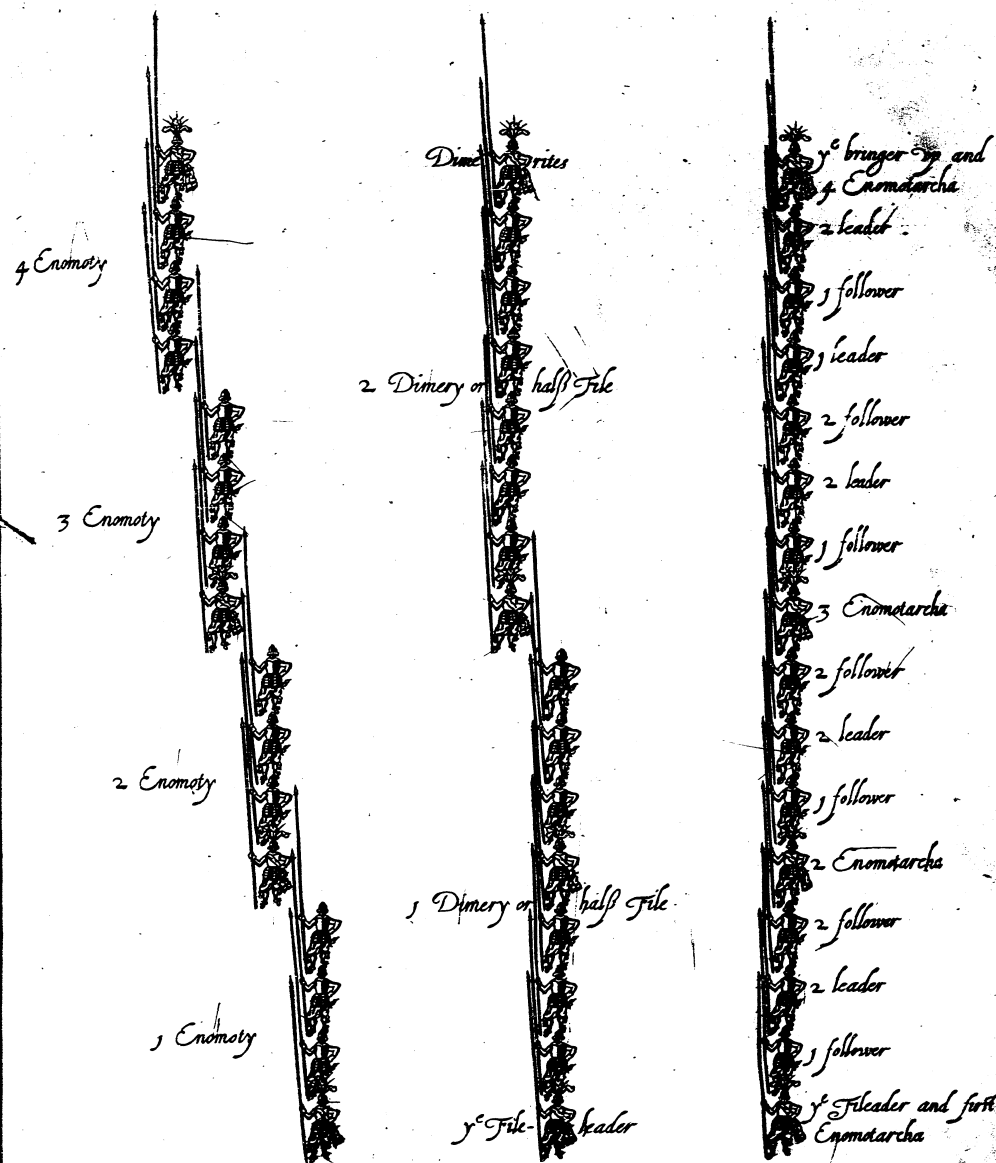 4 Enomoty
3 Enomoty
2 Enomoty
1 Enomoty
Dimerites
2 Dimery or halfe File
1 Dimery or halfe File
yᵉ File-leader
yᵉ bringer vp and
4 Enomotarcha
2 leader
1 follower
1 leader
2 follower
2 leader
1 follower
3 Enomotarcha
2 follower
2 leader
1 follower
2 Enomotarcha
2 follower
2 leader
1 follower
yᵉ Fileader and first
Enomotarcha